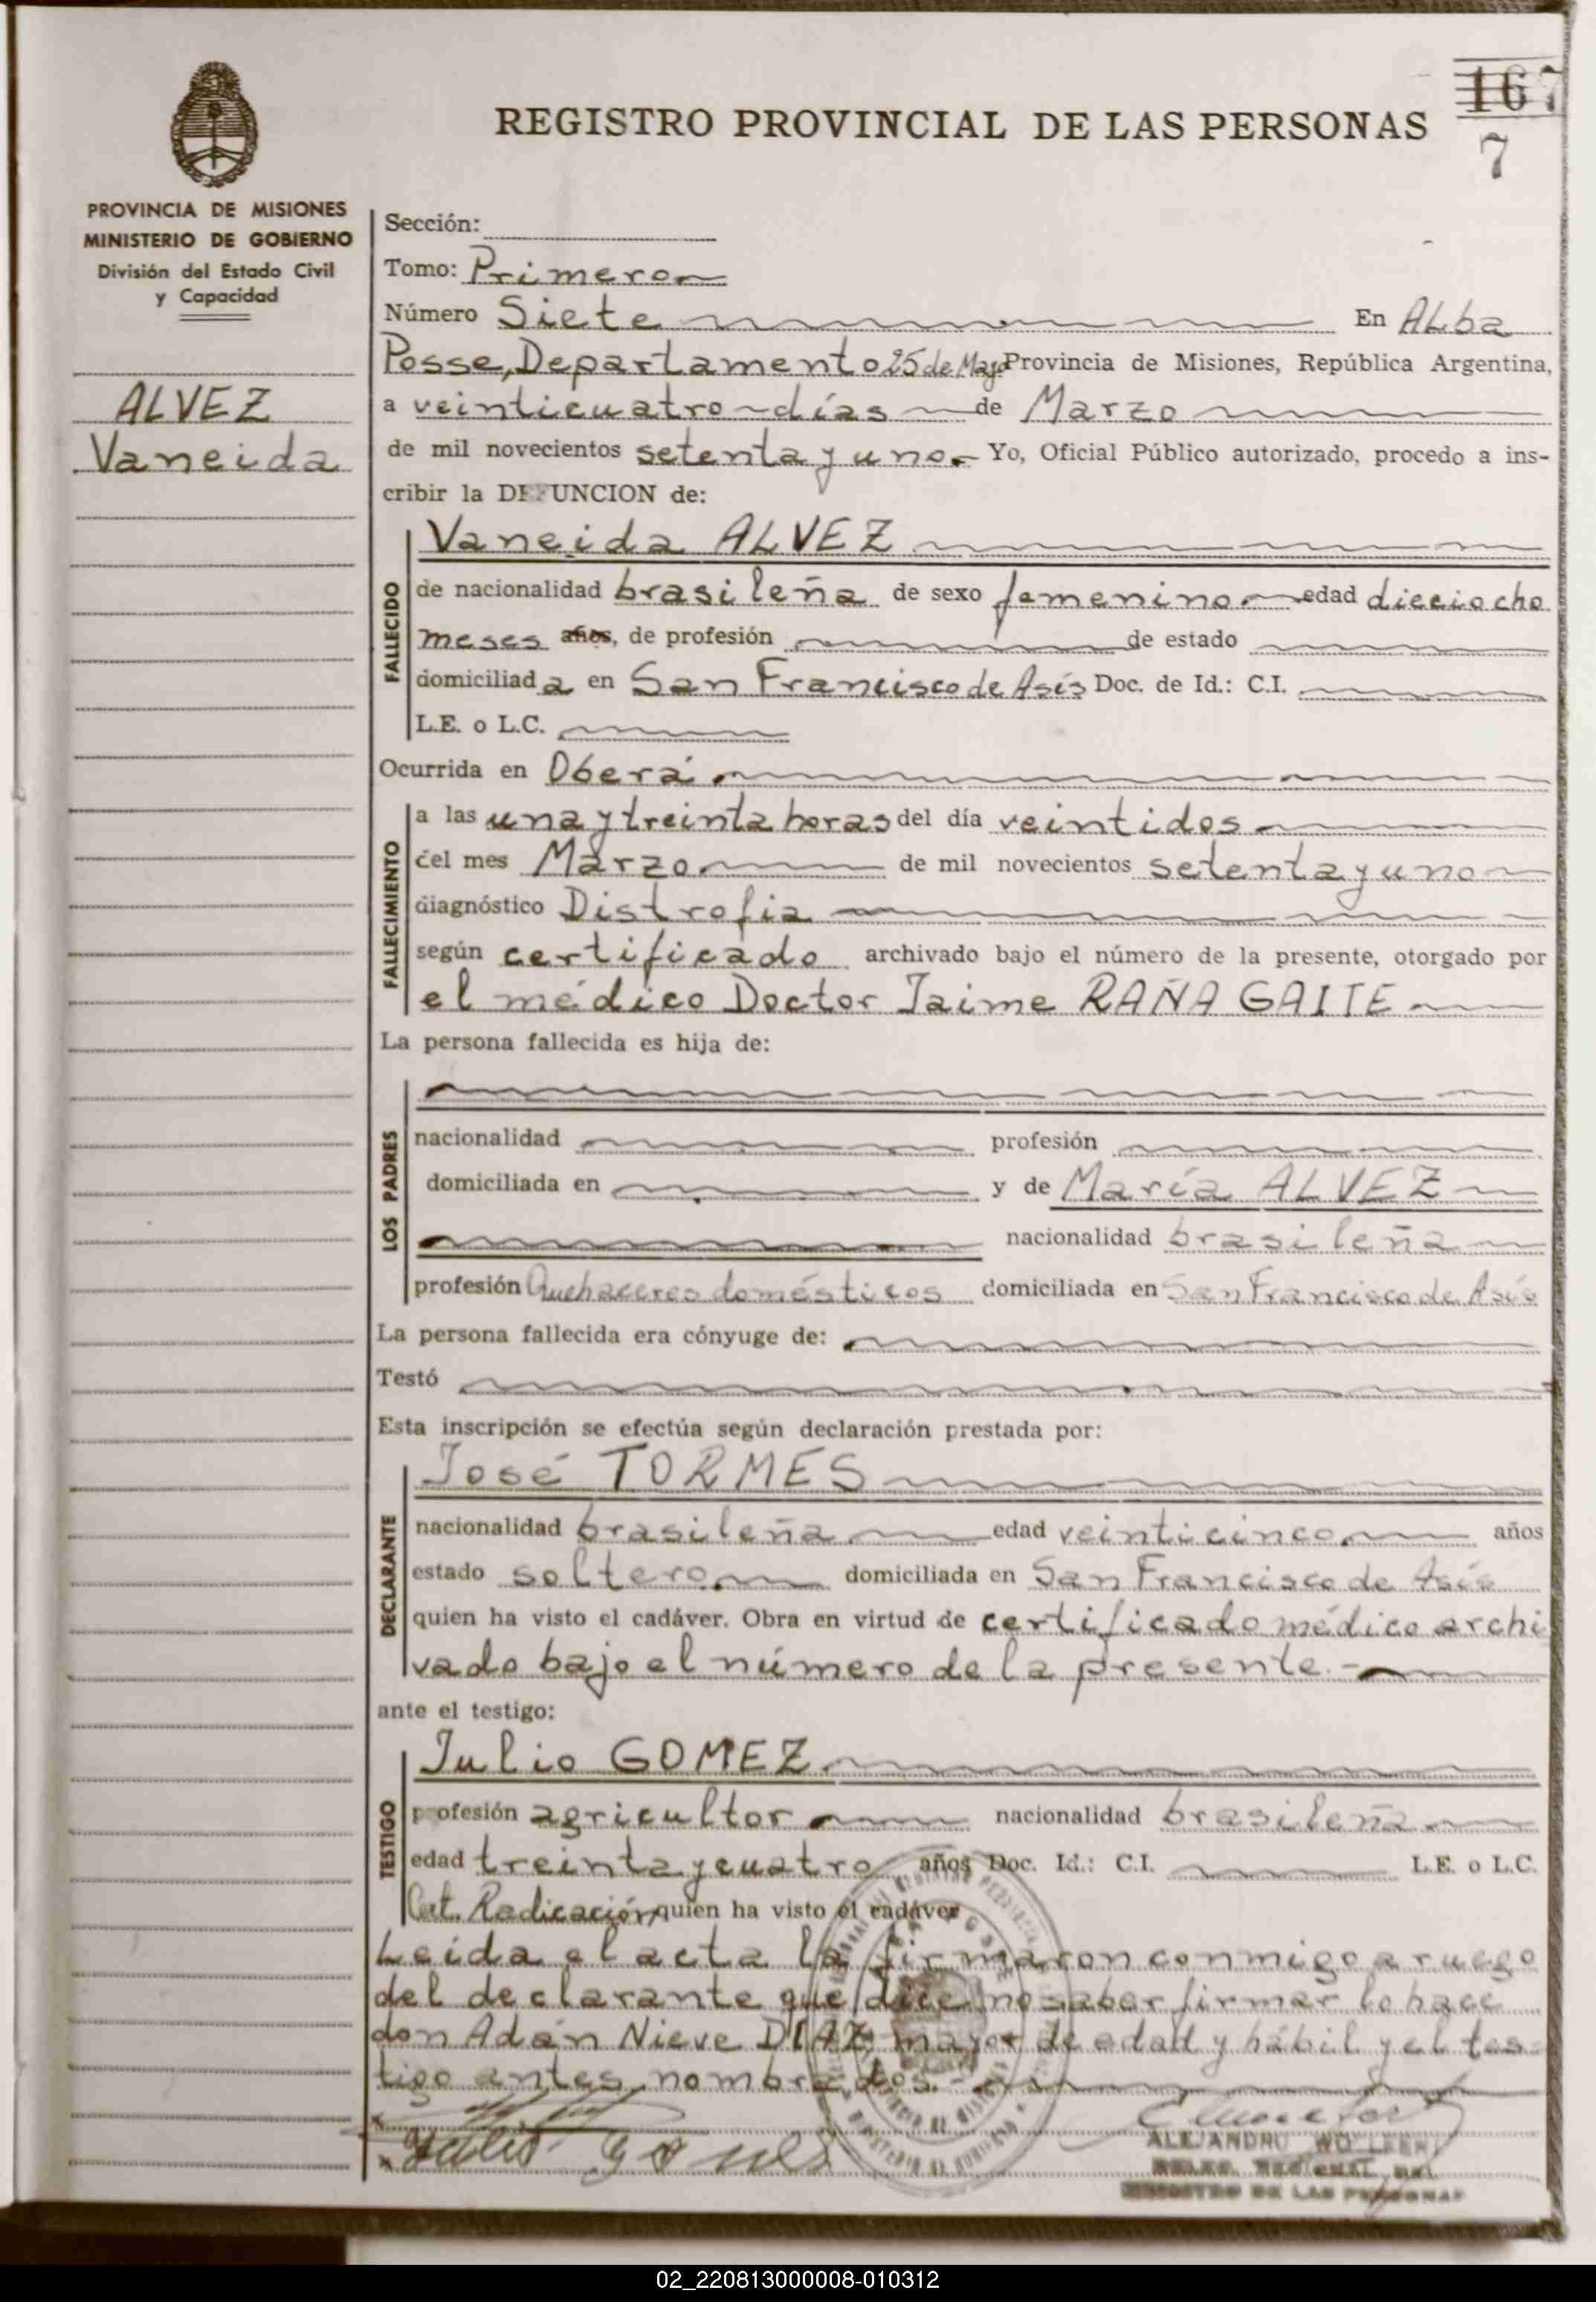 167
7
REGISTRO PROVINCIAL DE LAS PERSONAS
PROVINCIA DE MISIONES
MINISTERIO DE GOBIERNO
División del Estado Civil
y Capacidad
ALVEZ
Vaneida
Sección:
Tomo: Primero
Número Siete En ALba
Posse, Departamento 25 de Mayo Provincia de Misiones, República Argentina,
a veinticuatro días de Marzo
de mil novecientos setenta y uno. Yo, Oficial Público autorizado, procedo a ins-
cribir la DEFUNCION de:
FALLECIDO
Vaneida ALVEZ
de nacionalidad brasileña de sexo femenino edad dieciocho
meses años, de profesión de estado
domiciliada en San Francisco de Asís Doc. de Id.: C.I.
L.E. o L.C.
Ocurrida en Oberá
FALLECIMIENTO
a las una y treinta horas del día veintidos
del mes Marzo de mil novecientos setenta y uno
diagnóstico Distrofia
según certificado archivado bajo el número de la presente, otorgado por
el médico Doctor Jaime RAÑA GAITE
La persona fallecida es hija de:
LOS PADRES
nacionalidad profesión
domiciliada en y de María ALVEZ
nacionalidad brasileña
profesión Quehaceres domésticos domiciliada en San Francisco de Asís
La persona fallecida era cónyuge de:
Testó
Esta inscripción se efectúa según declaración prestada por:
DECLARANTE
José TORMES
nacionalidad brasileña edad veinticinco años
estado soltero domiciliada en San Francisco de Asís
quien ha visto el cadáver. Obra en virtud de certificado médico archi
vado bajo el número de la presente.-
ante el testigo:
TESTIGO
Julio GOMEZ
profesión agricultor nacionalidad brasileña
edad treinta y cuatro años Doc. Id.: C.I. L.E. o L.C.
Cert. Radicación quien ha visto el cadáver
Leída el acta la firmaron conmigo a ruego
del declarante que dice no saber firmar lo hace
don Adán Nieve DIAZ mayor de edad y hábil y el tes-
tigo antes nombrados.-
ALEJANDRO
REGISTRO DE LAS PERSONAS
02_220813000008-010312